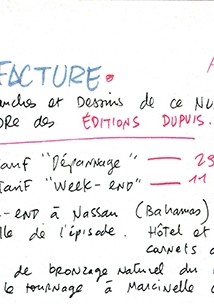 FACTURE.
anches et Dessins de ce Nu
des ÉDITIONS DUPUIS.
arif "Dépannage" — 29
arif "Week-end" — 11
- END à Nassau (Bahamas)
lle de l'épisode. Hôtel et
carnets d
de bronzage naturel du
le tournage à Marcinelle